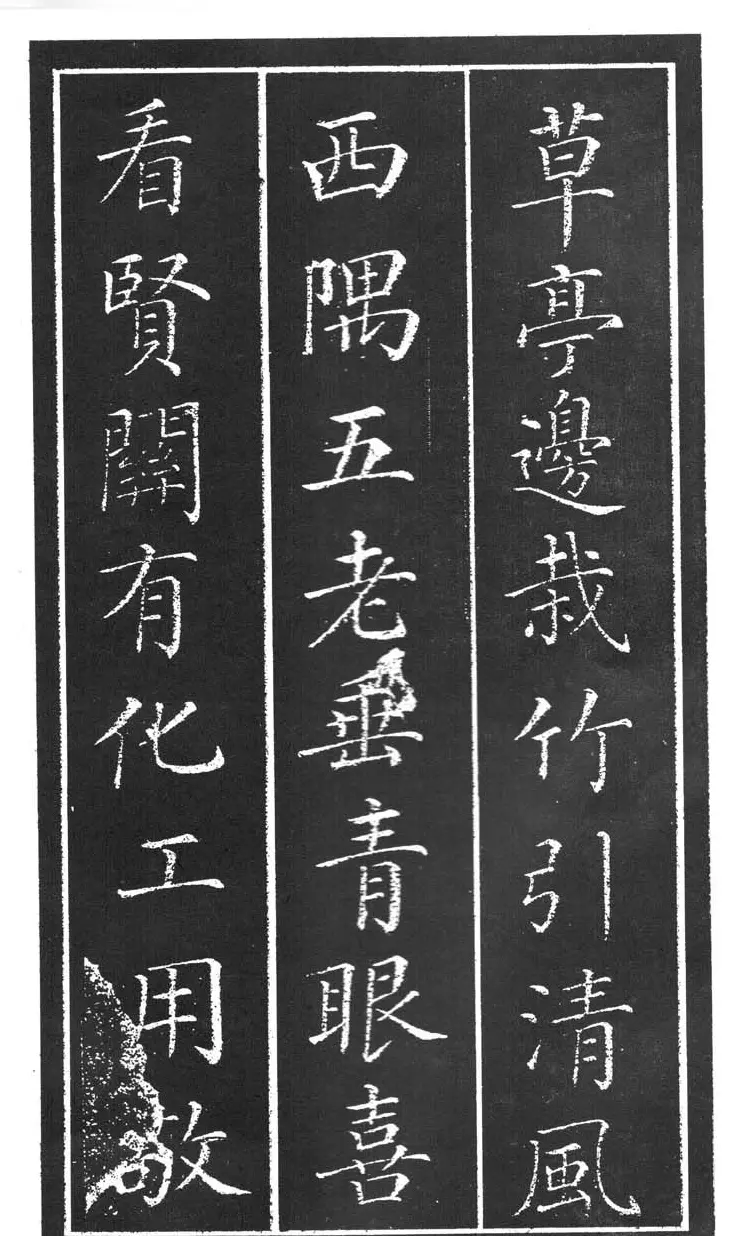 草亭邊栽竹引清風
西隅五老垂青眼喜
看賢關有化工用敬